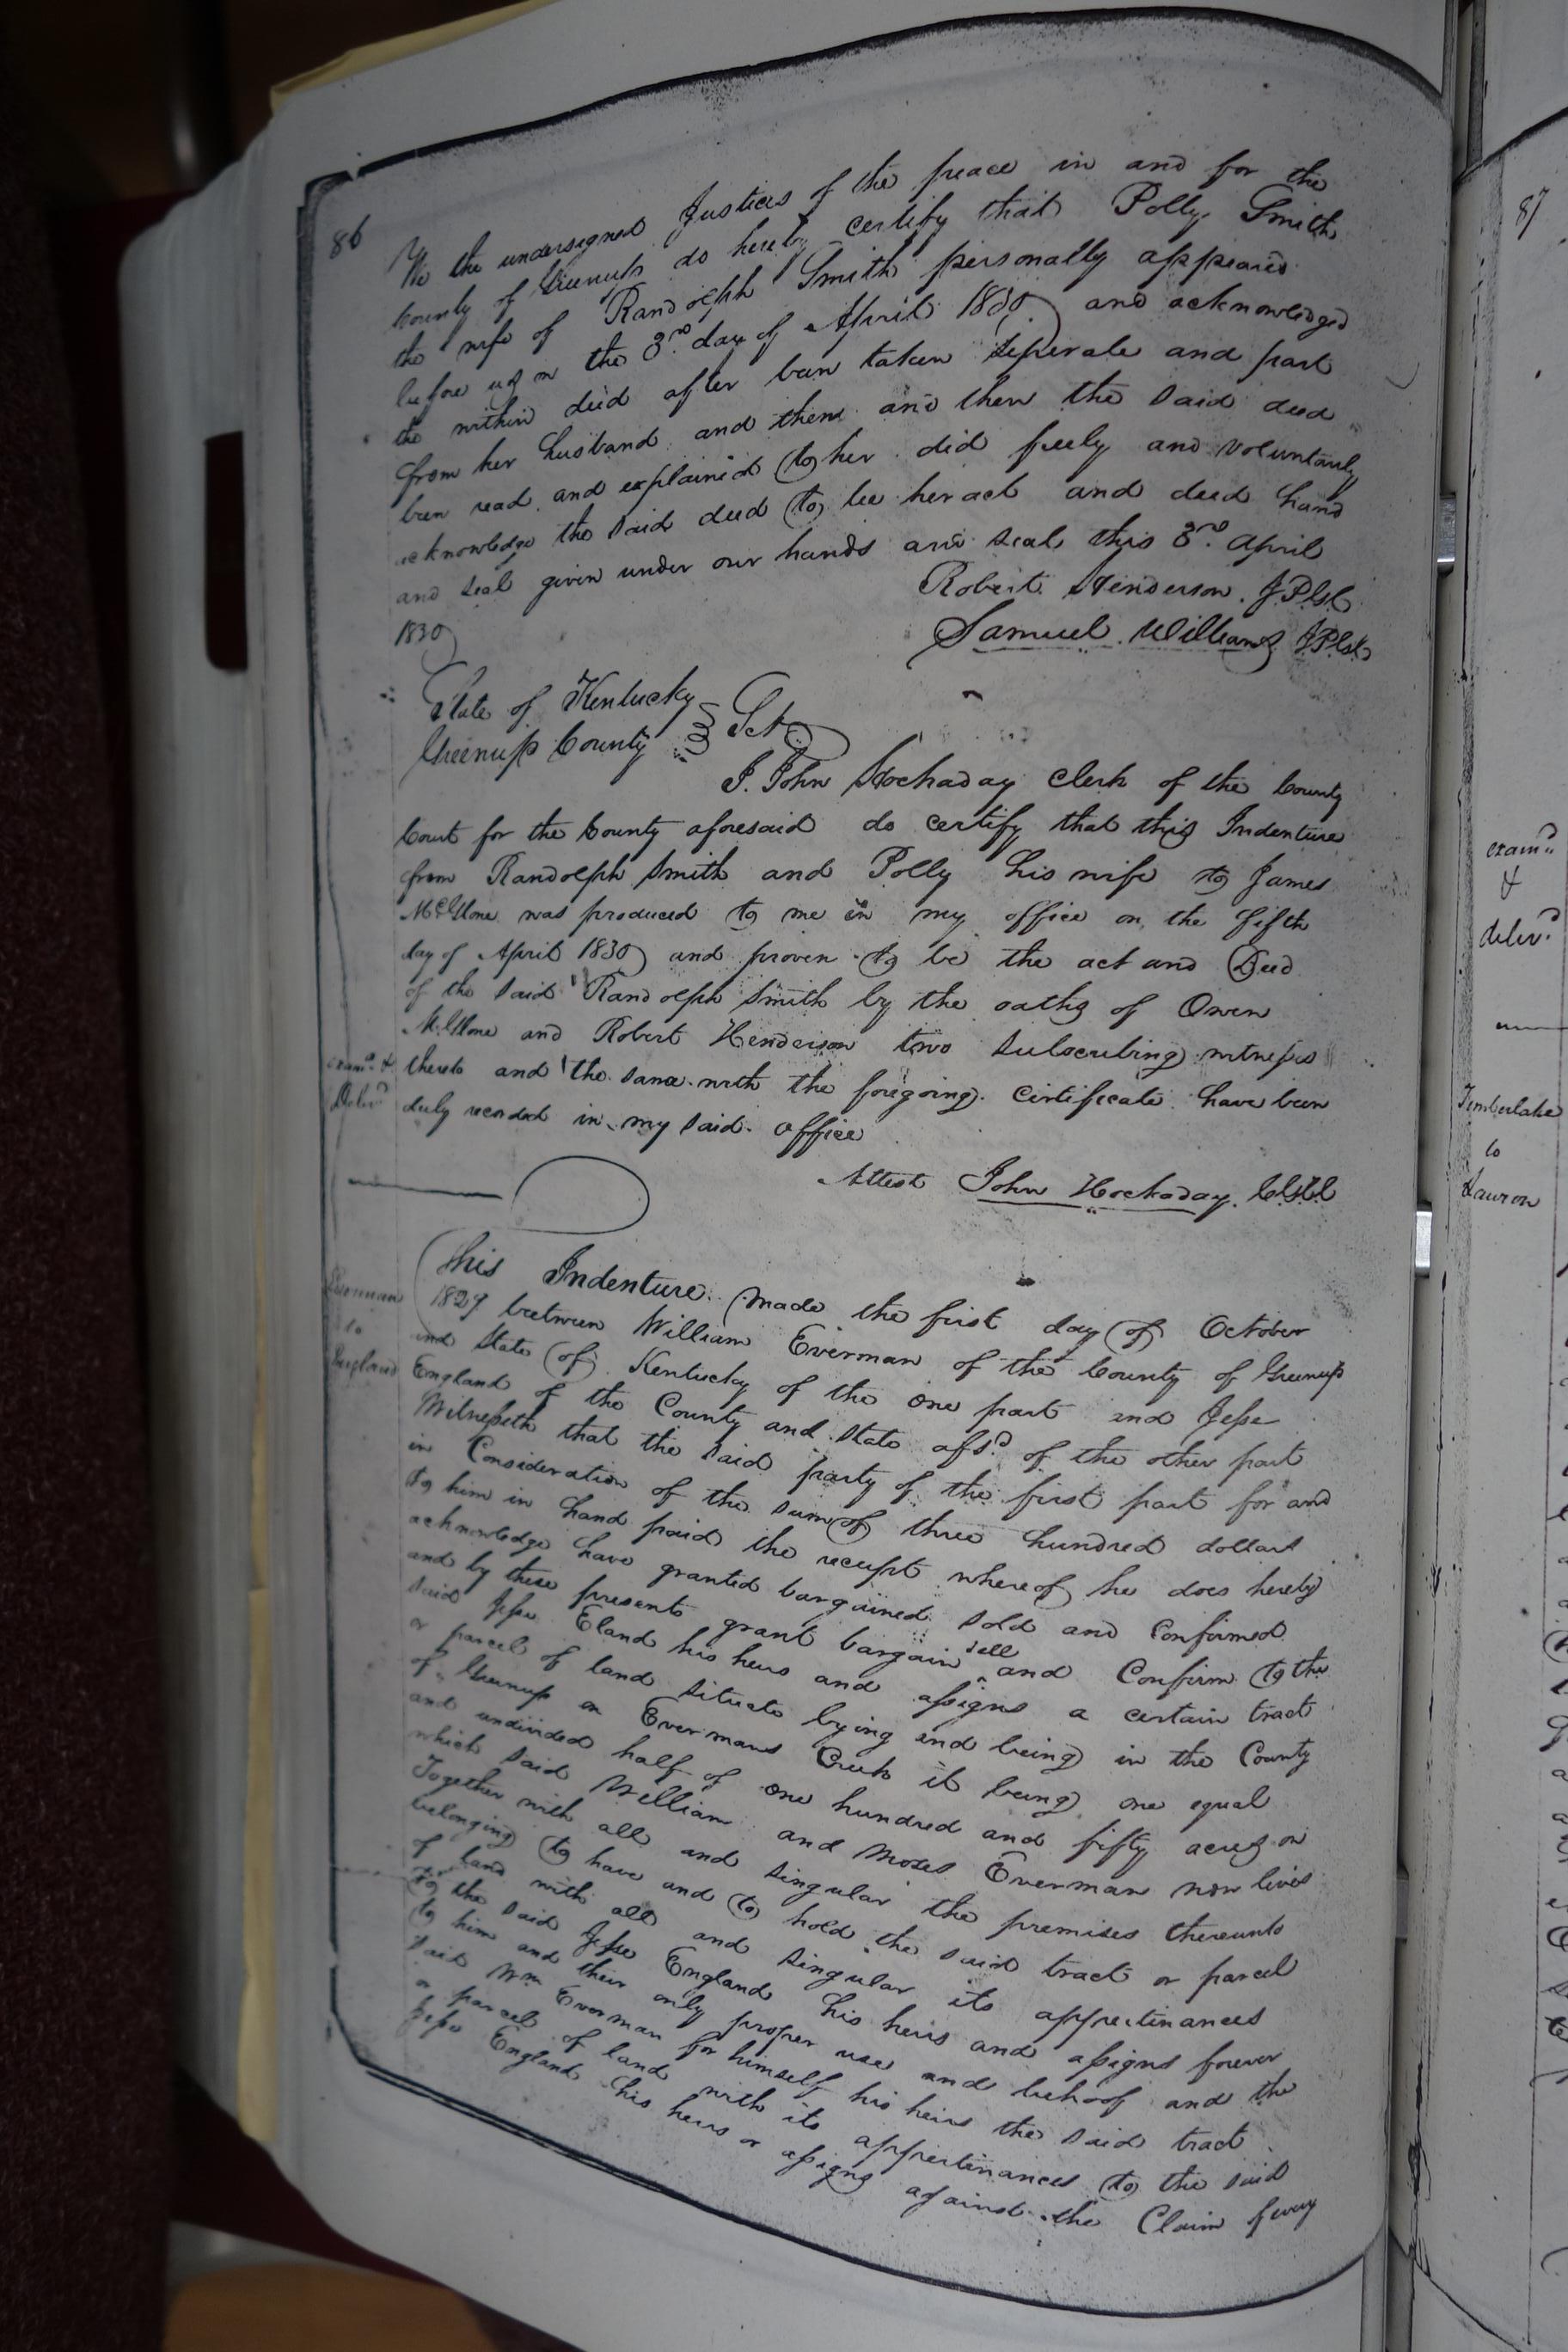 86
We the undersigned Justices of the peace in and for the
County of Greenup do hereby certify that Polly Smith
the wife of Randolph Smith personally appeared
before us on the 3rd day of April 1830 and acknowledged
the within deed after been taken seperate and part
from her husband and them and then the said deed
been read and explained to her did freely and voluntarily
acknowledge the said deed to be her act and deed hand
and seal given under our hands and seal this 3rd April
1830
Robert Henderson. JP
Samuel Williams JP
State of Kentucky
Greenup County Sct
I. John Hockaday Clerk of the County
Court for the County aforesaid do certify that this Indenture
from Randolph Smith and Polly his wife to James
McGlone was produced to me in my office on the fifth
day of April 1830 and proven to be the act and Deed
of the said Randolph Smith by the oaths of Owen
McGlone and Robert Henderson two subscribing witnesses
thereto and the same with the foregoing certificate have been
duly recorded in my said office
examd &
Delivd
Attest John Hockaday.
Everman
to
England
This Indenture made the first day of October
1829 between William Everman of the County of Greenup
and State of Kentucky of the one part and Jesse
England of the County and State afsd of the other part
Witnesseth that the said party of the first part for and
in Consideration of the sum of three hundred dollars
to him in hand paid the receipt whereof he does hereby
acknowledge have granted bargained sold and Confirmed
and by these presents grant bargain sell and Confirm to the
said Jesse Eland his heirs and assigns a certain tract
or parcel of land situate lying and being in the County
of Greenup on Evermans Creek it being one equal
and undivided half of one hundred and fifty acres on
which said William and Moses Everman now lives
Together with all and singular the premises thereunto
belonging to have and to hold the said tract or parcel
of land with all and singular its appertinances
to the said Jesse England his heirs and assigns forever
to him and their only proper use and behoof and the
said Wm Everman for himself his heirs the said tract
or parcel of land with its appertinances to the said
Jesse England his heirs or assigns against the Claim
87
examd
&
delivd
Timberlake
to